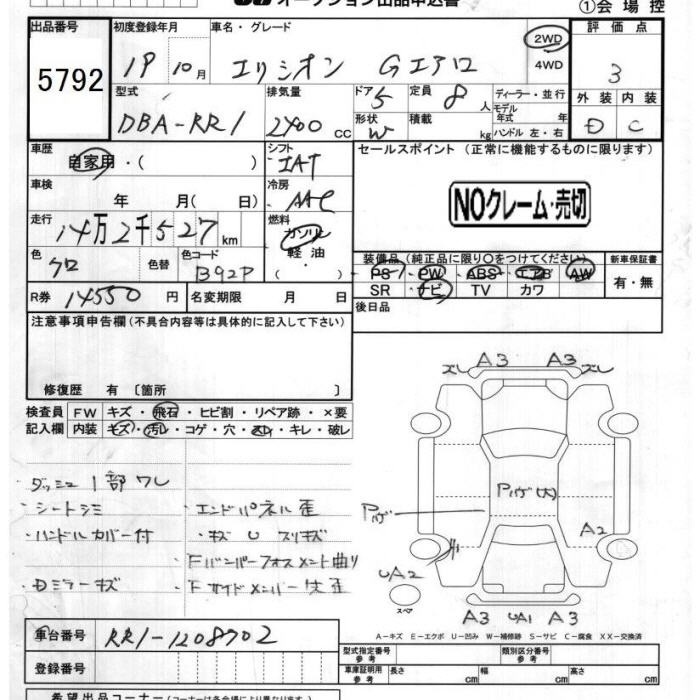 オークション出品申込書
①会場控
出品番号
5792
初度登録年月
19 10月
車名・グレード
エリシオン Gエアロ
2WD
4WD
評価点
3
外装 内装
D C
型式
DBA-RR1
排気量
2400 cc
ドア 5
形状 W
定員 8 人
積載 kg
ディーラー・並行
モデル年式 年
ハンドル 左・右
車歴
自家用・( )
シフト
IAT
セールスポイント (正常に機能するものに限ります)
NOクレーム・売切
車検
年 月( 日)
冷房
AAC
走行
14万2千527km
燃料
ガソリン
軽油
・( )
色
クロ
色替
色コード
B92P
装備品 (純正品に限り○をつけてください)
PS PW ABS エアB AW
SR ナビ TV カワ
新車保証書
有・無
R券 14550円
名変期限 月 日
後日品
注意事項申告欄(不具合内容等は具体的に記入して下さい)
修復歴 有 [箇所 ]
検査員
記入欄
FW キズ・飛石・ヒビ割・リペア跡・×要
内装 キズ・汚レ・コゲ・穴・スレ・キレ・破レ
ダッシュ1部ワレ
・シートシミ
・ハンドルカバー付
・Dミラーキズ
・エンドパネル歪
・キズ U スリキズ
・Fバンパーフォスメント曲り
・Fサイドメンバー先歪
ズレ A3 A3 ズレ
Pハゲ
Pハゲ(大)
A2
UA2
スペア
A3 UA1 A3
A-キズ E-エクボ U-凹み W-補修跡 S-サビ C-腐食 XX-交換済
車台番号
RR1-1208702
登録番号
型式指定番号
参考
類別区分番号
参考
車庫証明用
参考
長さ cm
幅 cm
高さ cm
希望出品コーナー(コーナーは各会場により異なります。)